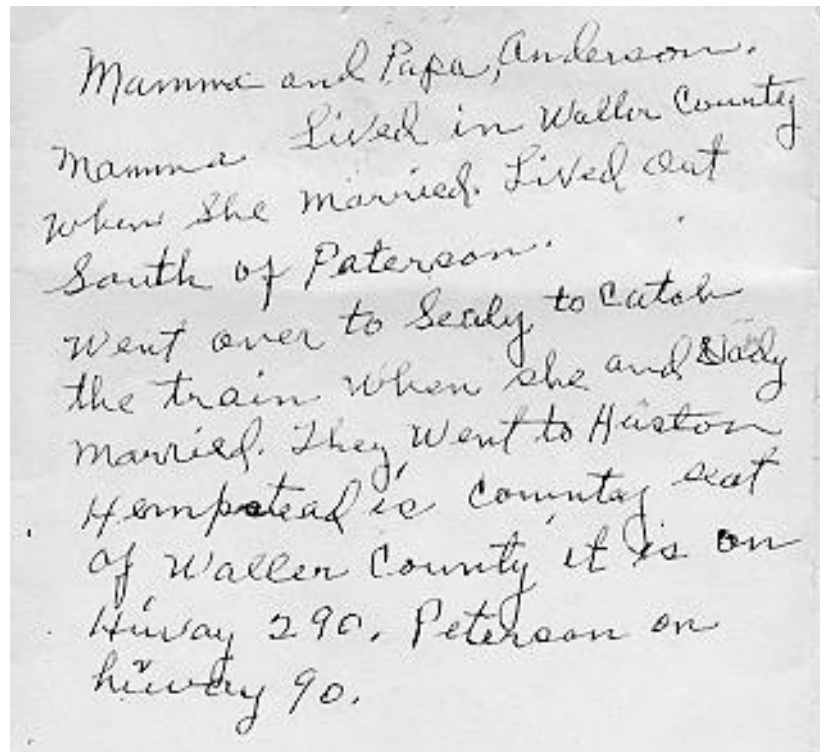 Mamma and Papa, Anderson.
Mamma Lived in Waller County
When She Married. Lived out
South of Paterson.
Went over to Sealy to Catch
the train When she and Dady
married. They Went to Huston
Hempstead is Country seat
of Waller County it is on
Hiway 290. Peterson on
hiway 90.